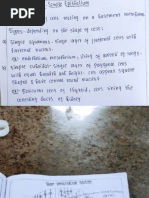 Simple Epithelium
cells resting on a basement membrane
Types - depending on the shape of cells:
a) Simple squamous: Single layer of flattened cells with
flattened nucleus.
eg: endothelium, mesothelium, lining of alveoli of lungs.
b) Simple cuboidal: Single layer of polygonal cells
with equal breadth and height. cells appears square
shaped & have central round nucleus.
eg: follicular cells of thyroid, cells lining the
collecting ducts of kidney